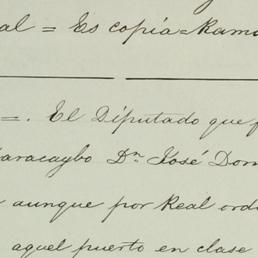 al = Es copia = Ramo
=. El Diputado que f
aracaybo Dn. José Dom
aunque por Real orde
aquel puerto en clase